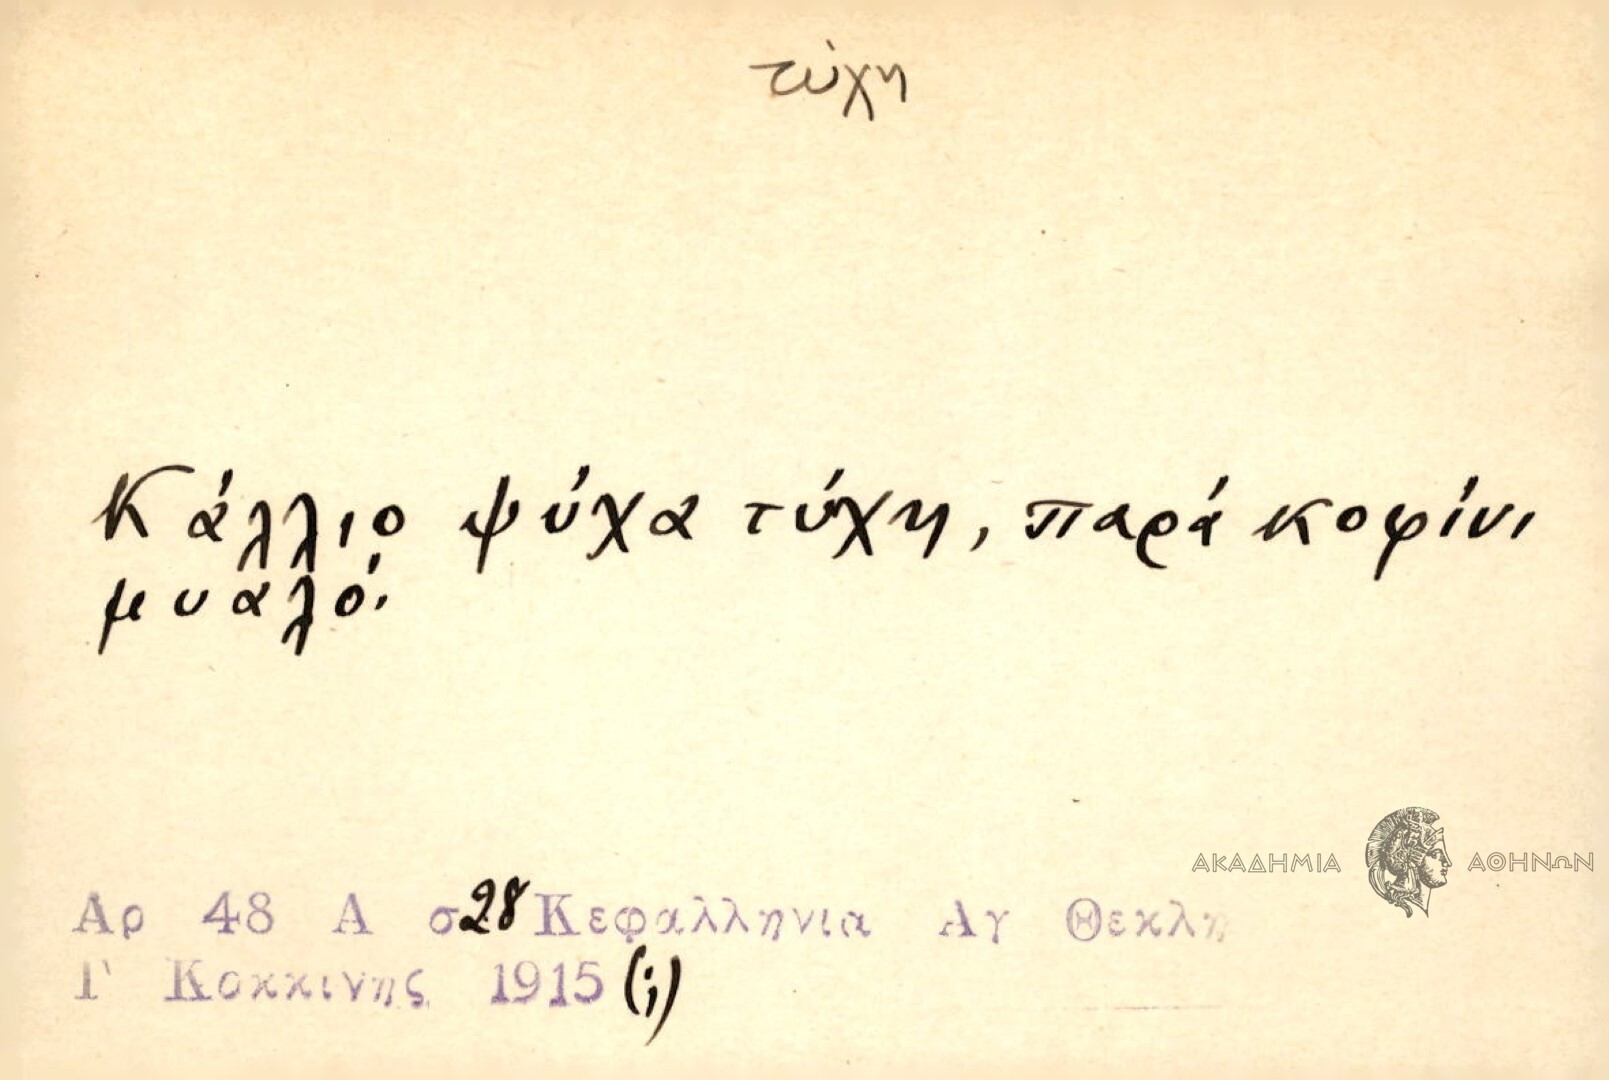 τύχη
Κάλλιο ψύχα τύχη, παρά κοφίνι
μυαλό.
ΑΚΑΔΗΜΙΑ ΑΘΗΝΩΝ
Αρ 48 Α σ 28 Κεφαλληνια Αγ Θεκλη
Γ Κοκκινης 1915 (;)